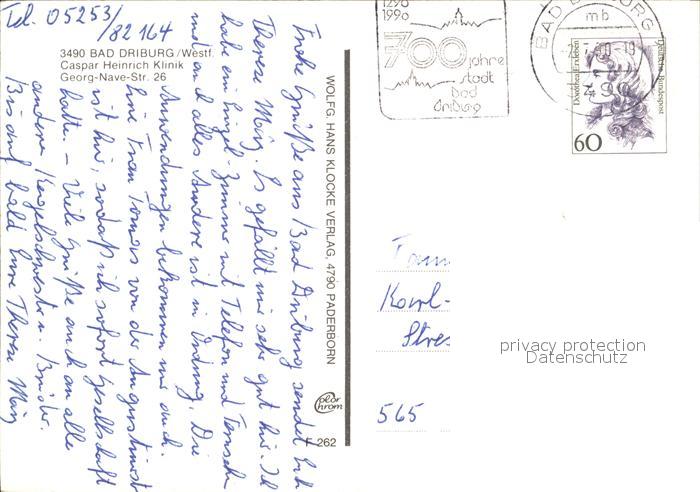 Tel. 05253/
/82 164
3490 BAD DRIBURG/Westf.
Caspar Heinrich Klinik
Georg-Nave-Str. 26
Frohe Grüße aus Bad Driburg sendet Euch
Therese März. Es gefällt mir sehr gut hier. Ich
habe ein Einzel-Zimmer mit Telefon und Fernseher
und auch alles Andere ist in Ordnung. Die
Anwendungen bekommen mir auch.
Eine Frau Tomas von der Augustinusstr
ist hier, sodaß ich sofort Gesellschaft
hatte. – Viele Grüße auch an alle
anderen Kegelschwestern u. Brüder.
Bis auf bald Eure Therese März
WOLFG. HANS KLOCKE VERLAG, 4790 PADERBORN
Color
Chrom
F 262
1290
1990
700 jahre
stadt
bad
driburg
BAD DRIBURG
mb
3490
Dorothea Erxleben
Deutsche Bundespost
60
Fam
Karl-
Stres
565
privacy protection
Datenschutz